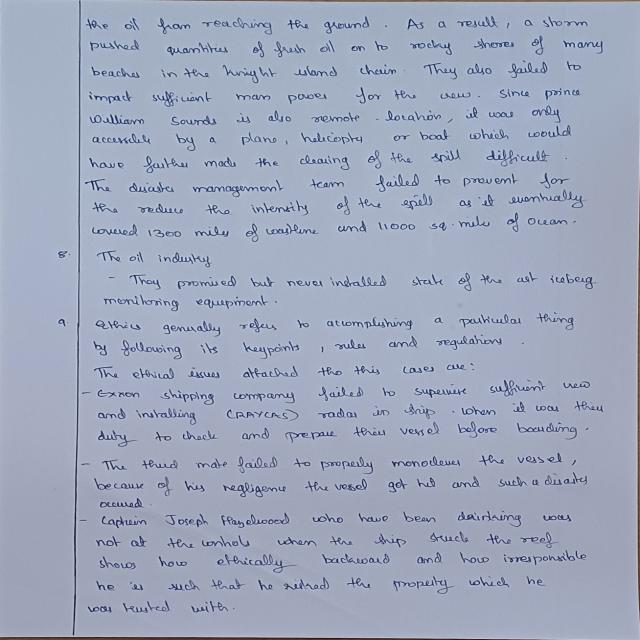 the oil from reaching the ground. As a result, a storm
pushed quantities of fresh oil on to rocky shores of many
beaches in the knight island chain. They also failed to
impact sufficient man power for the crew. Since prince
William Sounds is also remote location, it was only
accessible by a plane, helicopter or boat which would
have further made the clearing of the spill difficult.
The disaster management team failed to prevent for
the reduce the intensity of the spill as it eventually
covered 1300 miles of coastline and 11000 sq. miles of ocean.
8. The oil industry
- They promised but never installed state of the art iceberg
monitoring equipment.
9. Ethics generally refers to accomplishing a particular thing
by following its keypoints, rules and regulations.
The ethical issues attached tho this cases are:
- Exxon shipping company failed to supervise sufficient crew
and installing (RAYCAS) radar in ship. When it was their
duty to check and prepare their vessel before boarding.
- The third mate failed to properly the vessel,
because of his negligence the vessel got hit and such a disaster
occured.
- Captain Joseph Hazelwood who have been drinking was
not at the controls when the ship struck the reef
shows how ethically backward and how irresponsible
he is such that he the property which he
was trusted with.